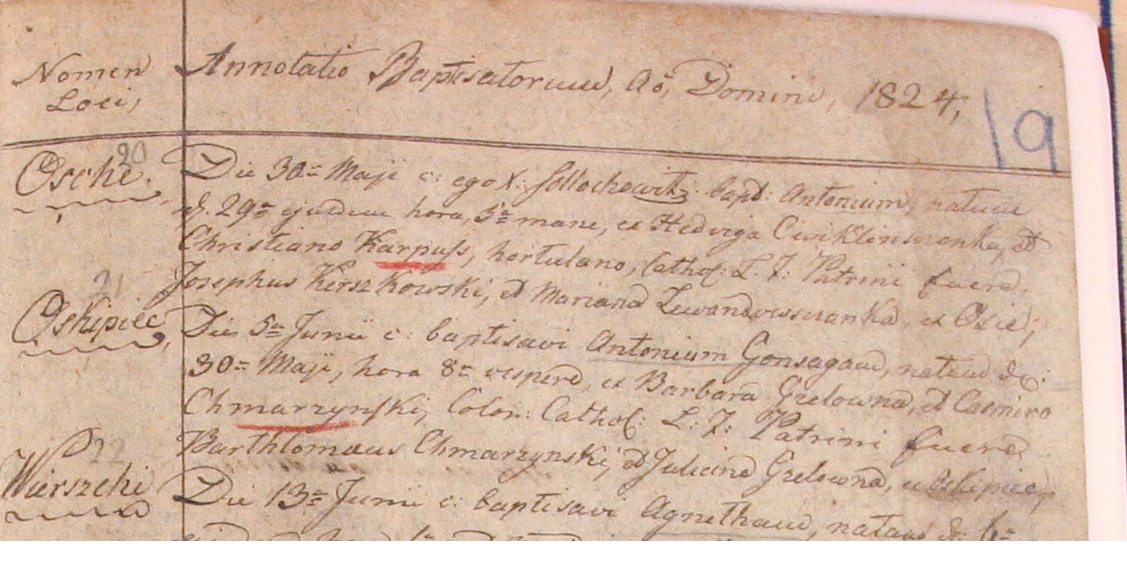 Nomen Loci,
Annotatio Baptisatorum, Aõ, Domini, 1824,
19
20
Osche.
Die 30ª Maji c: ego X: Sollochowitz bapt: Antonium, natum
d. 29ª ejusdem hora, 5ª mane, ex Hedviga Cwiklinscanka, et
Christiano Karpuss, hortulano, Cathol: L. T: Patrini fuere,
Josephus Kerszkowski, et Mariana Lewandowscanka, ex Osie;
21
Oskipiec,
Die 5ª Junii c: baptisavi Antonium Gonsagam, natum d:
30ª Maji, hora 8ª vespere, ex Barbara Grelowna, et Casmiro
Chmarzynski, Colon: Cathol: L: T: Patrini fuere,
Barthlomaus Chmarzynski, et Juliana Grelowna, ex Oskipiec,
22
Wierszchi
Die 13ª Junii c: baptisavi Agnetham, natam d: 6ª